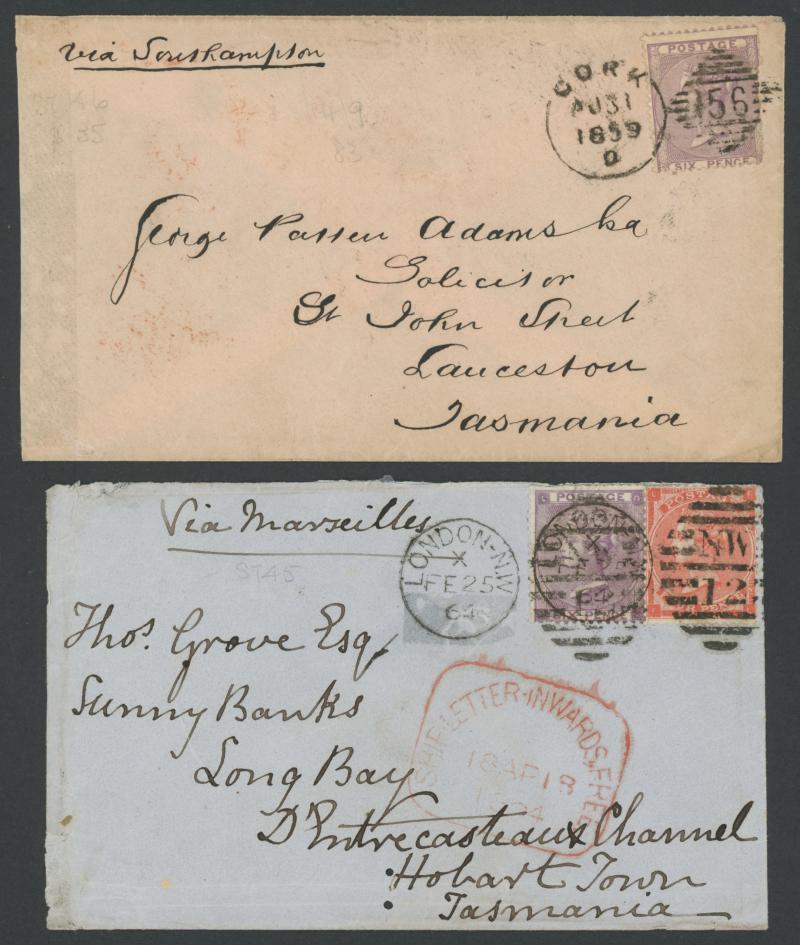 via Southampton
CORK
AU 31
1859
D
POSTAGE
156
SIX PENCE
George Passen Adams
Solicitor
St John Street
Launceston
Tasmania
Via Marseilles
ST45
LONDON-N.W
X
FE 25
64
POSTAGE
LONDON
X
64
POSTAGE
NW
12
Thos. Grove Esq
Sunny Banks
Long Bay
D'Entrecasteaux Channel
Hobart Town
Tasmania
SHIP-LETTER-INWARDS, FREE
18 AP 18